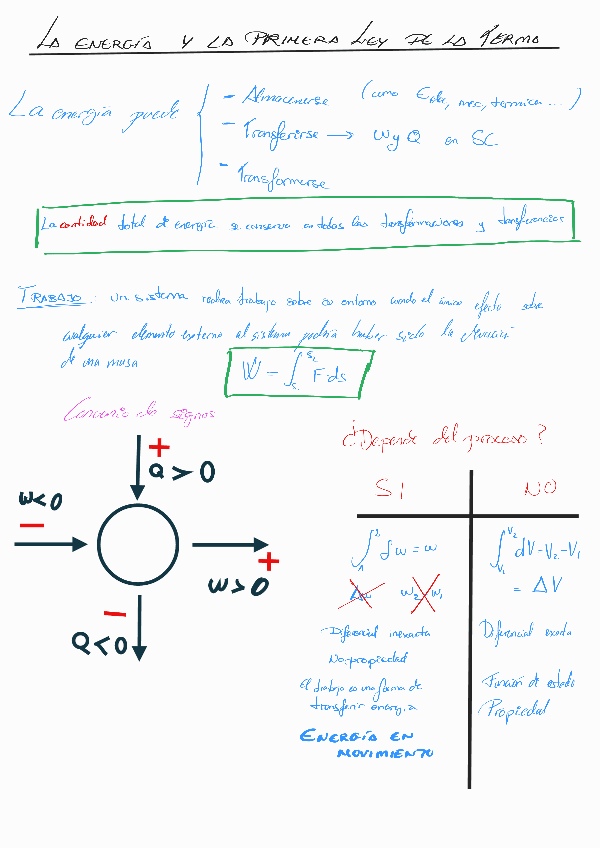 LA ENERGÍA Y LA PRIMERA LEY DE LA TERMO
La energía puede
- Almacenarse (como Eele, mec, termica...)
- Transferirse → W y Q en SC
- Transformarse
La cantidad total de energía se conserva en todas las transformaciones y transferencias
TRABAJO: Un sistema realiza trabajo sobre su entorno cuando el único efecto sobre
cualquier elemento externo al sistema podría haber sido la elevación
de una masa
W = ∫_{S1}^{S2} F·ds
Convenio de signos
+
Q > 0
W < 0
−
+
W > 0
−
Q < 0
¿Depende del proceso?
SI
NO
∫_1^2 δw = w
Δw w2-w1
- Diferencial inexacta
No propiedad
El trabajo es una forma de
transferir energía
ENERGÍA EN
MOVIMIENTO
∫_{V1}^{V2} dV = V2 - V1
= ΔV
Diferencial exacta
Función de estado
Propiedad